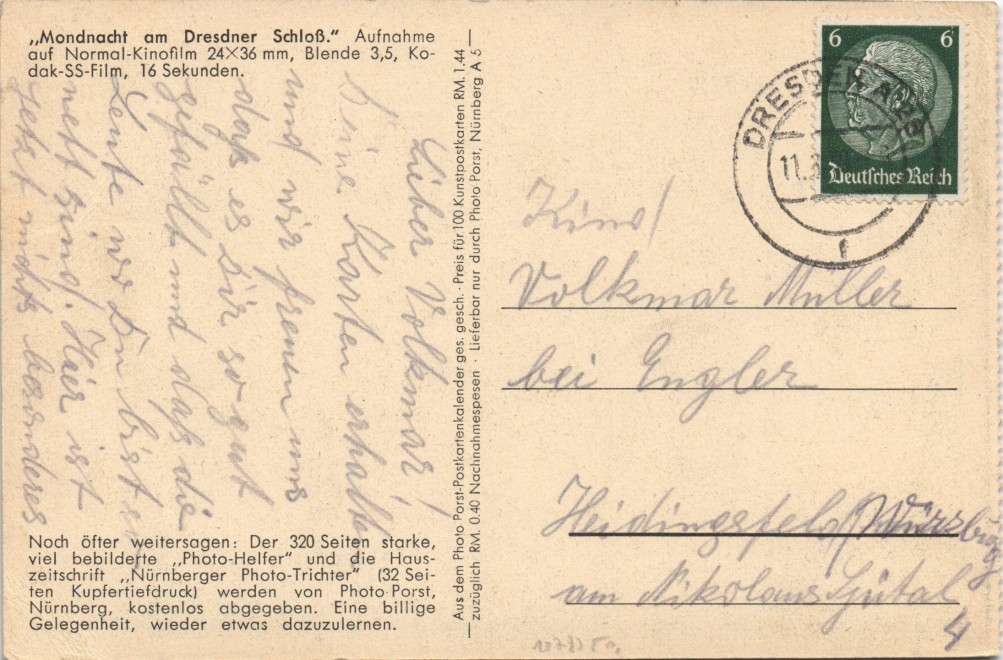 „Mondnacht am Dresdner Schloß.“ Aufnahme
auf Normal-Kinofilm 24×36 mm, Blende 3,5, Ko-
dak-SS-Film, 16 Sekunden.
Lieber Volkmar!
Deine Karten erhalten
und wir freuen uns
daß es Dir so gut
gefällt und daß die
Leute wo Du bist
nett sind. Hier ist
jetzt nichts besonderes
Noch öfter weitersagen: Der 320 Seiten starke,
viel bebilderte „Photo-Helfer“ und die Haus-
zeitschrift „Nürnberger Photo-Trichter“ (32 Sei-
ten Kupfertiefdruck) werden von Photo-Porst,
Nürnberg, kostenlos abgegeben. Eine billige
Gelegenheit, wieder etwas dazuzulernen.
Aus dem Photo Porst-Postkartenkalender ges. gesch. · Preis für 100 Kunstpostkarten RM. 1.44
zuzüglich RM. 0.40 Nachnahmespesen · Lieferbar nur durch Photo Porst, Nürnberg A 5
6 6
Deutsches Reich
DRESDEN
11.
f
Kind
Volkmar Müller
bei Engler
Heidingsfeld/Würzburg
am Nikolaus
4